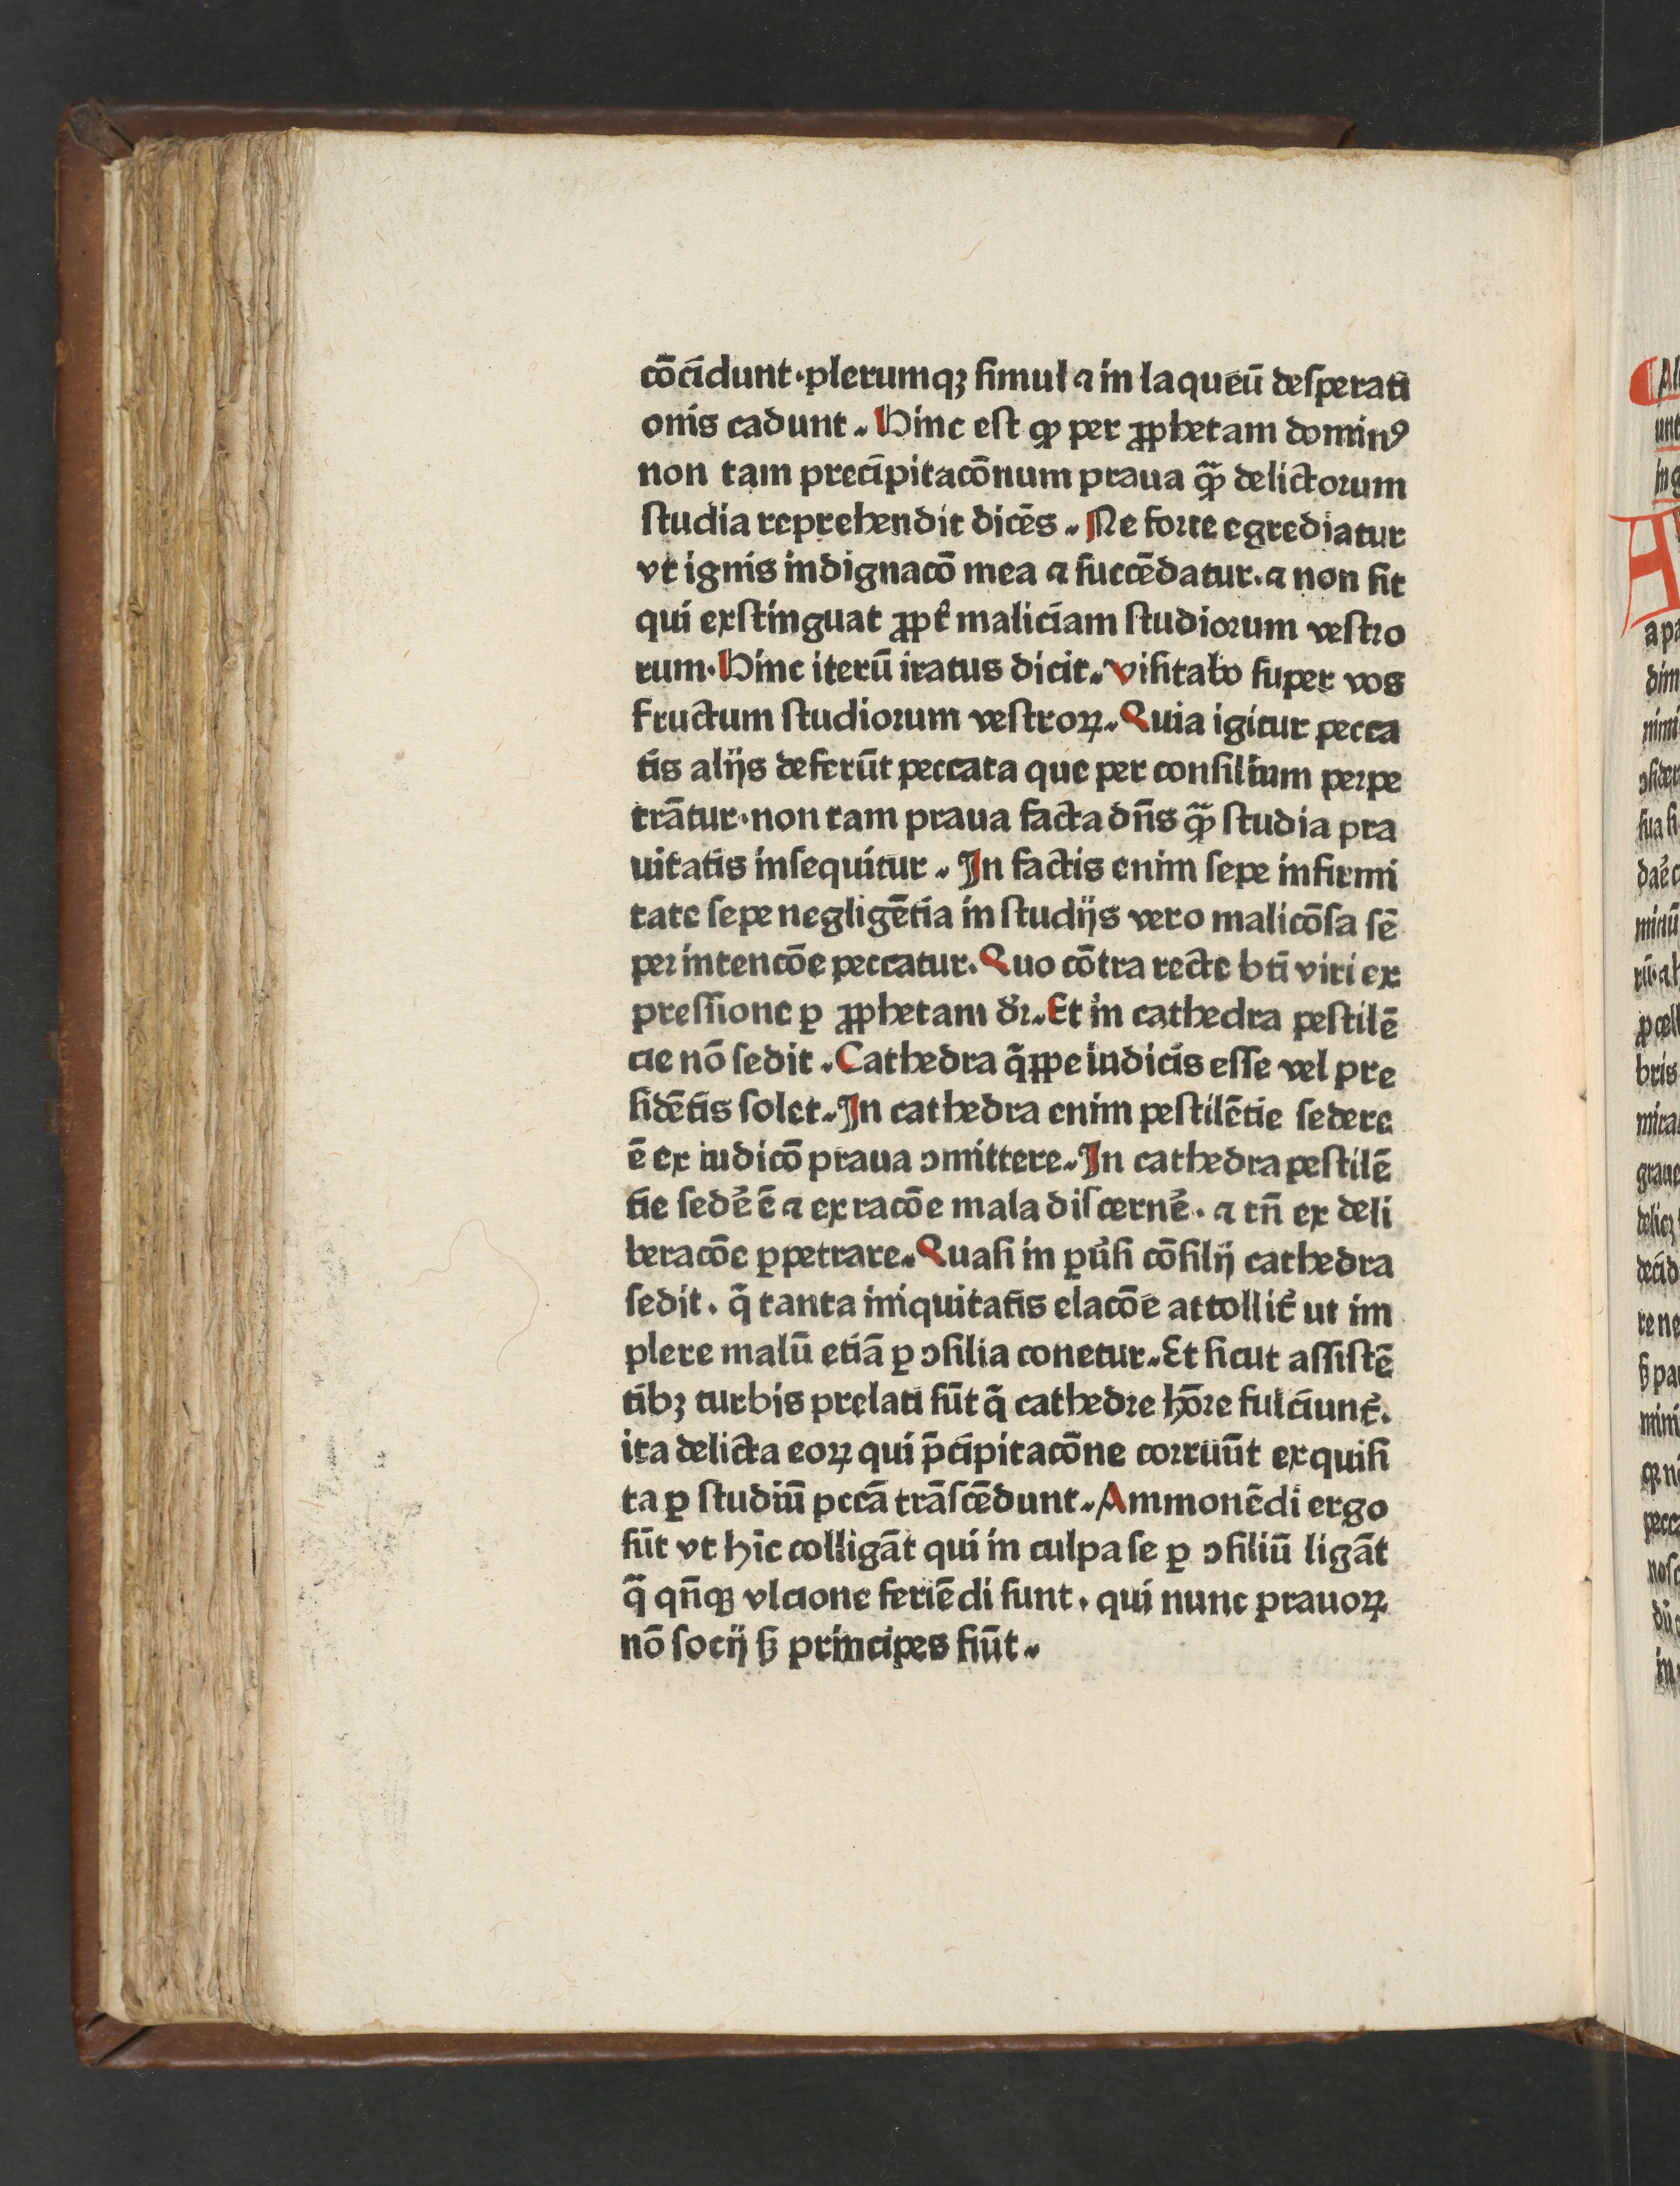 cōcidunt·plerumqꝫ ſimul ⁊ in laqueū deſperati
onis cadunt. Hinc eſt ꝙ per ꝓphetam dominꝰ
non tam precipitacōnum praua qȝ̄ delictorum
ſtudia reprehendit dicēs. Ne forte egrediatur
vt ignis indignacō mea ⁊ ſuccēdatur.⁊ non ſit
qui exſtinguat ꝓpt̓ maliciam ſtudioꝛum veſtro
rum·Hinc iterū iratus dicit. Viſitabo ſuper vos
fructum ſtudioꝛum veſtroꝝ. Quia igitur pecca
tis alijs deferūt peccata que per conſilium perpe
trātur·non tam praua facta dn̄s qȝ̄ ſtudia pra
uitatis inſequitur. In factis enim ſepe infirmi
tate ſepe negligētia in ſtudijs vero malicōſa ſē
per intencōe peccatur. Quo cōtra recte bti viri ex
preſſione ꝑ ꝓphetam dꝛ̄. Et in cathedra peſtilē
cie nō ſedit. Cathedra q̄ꝓpe iudicis eſſe vel pre
ſidētis ſolet. In cathedra enim peſtilētie ſedere
ē ex iudicō praua ↄmittere. In cathedra peſtilē
tie ſede᷑ ē ⁊ ex racōe mala diſcerne᷑. ⁊ tn̄ ex deli
beracōe ꝑpetrare. Quaſi in ꝑu̓ſi cōſilij cathedra
ſedit. q̄ tanta iniquitatis elacōe attollit᷑ ut im
plere malū etiā ꝑ ↄſilia conetur. Et ſicut aſſiſtē
tibꝫ turbis prelati ſūt q̄ cathedre ho̅ꝛe fulciunt᷑.
ita delicta eoꝝ qui p̄cipitacōne coꝛruūt exquiſi
ta ꝑ ſtudiū pccā trāſcēdunt. Ammonēdi ergo
ſūt vt hīc colligāt qui in culpa ſe ꝑ ↄſiliū ligāt
q̄ qn̄qꝫ vlcione feriēdi ſunt. qui nunc prauoꝝ
nō ſocij ſꝫ principes fiūt.